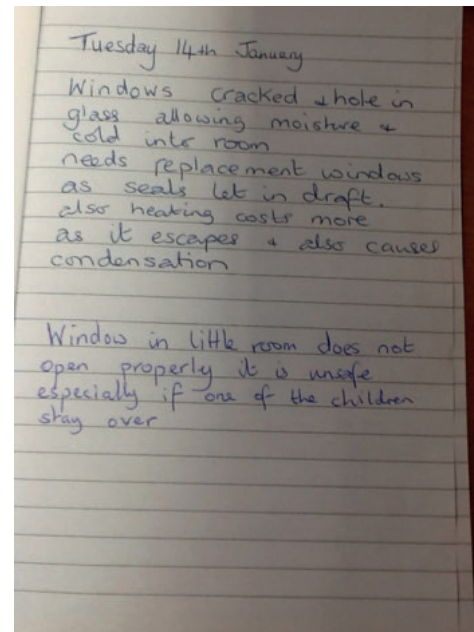 Tuesday 14th January
Windows cracked & hole in
glass allowing moisture &
cold into room
needs replacement windows
as seals let in draft.
also heating costs more
as it escapes & also causes
condensation
Window in little room does not
open properly it is unsafe
especially if one of the children
stay over